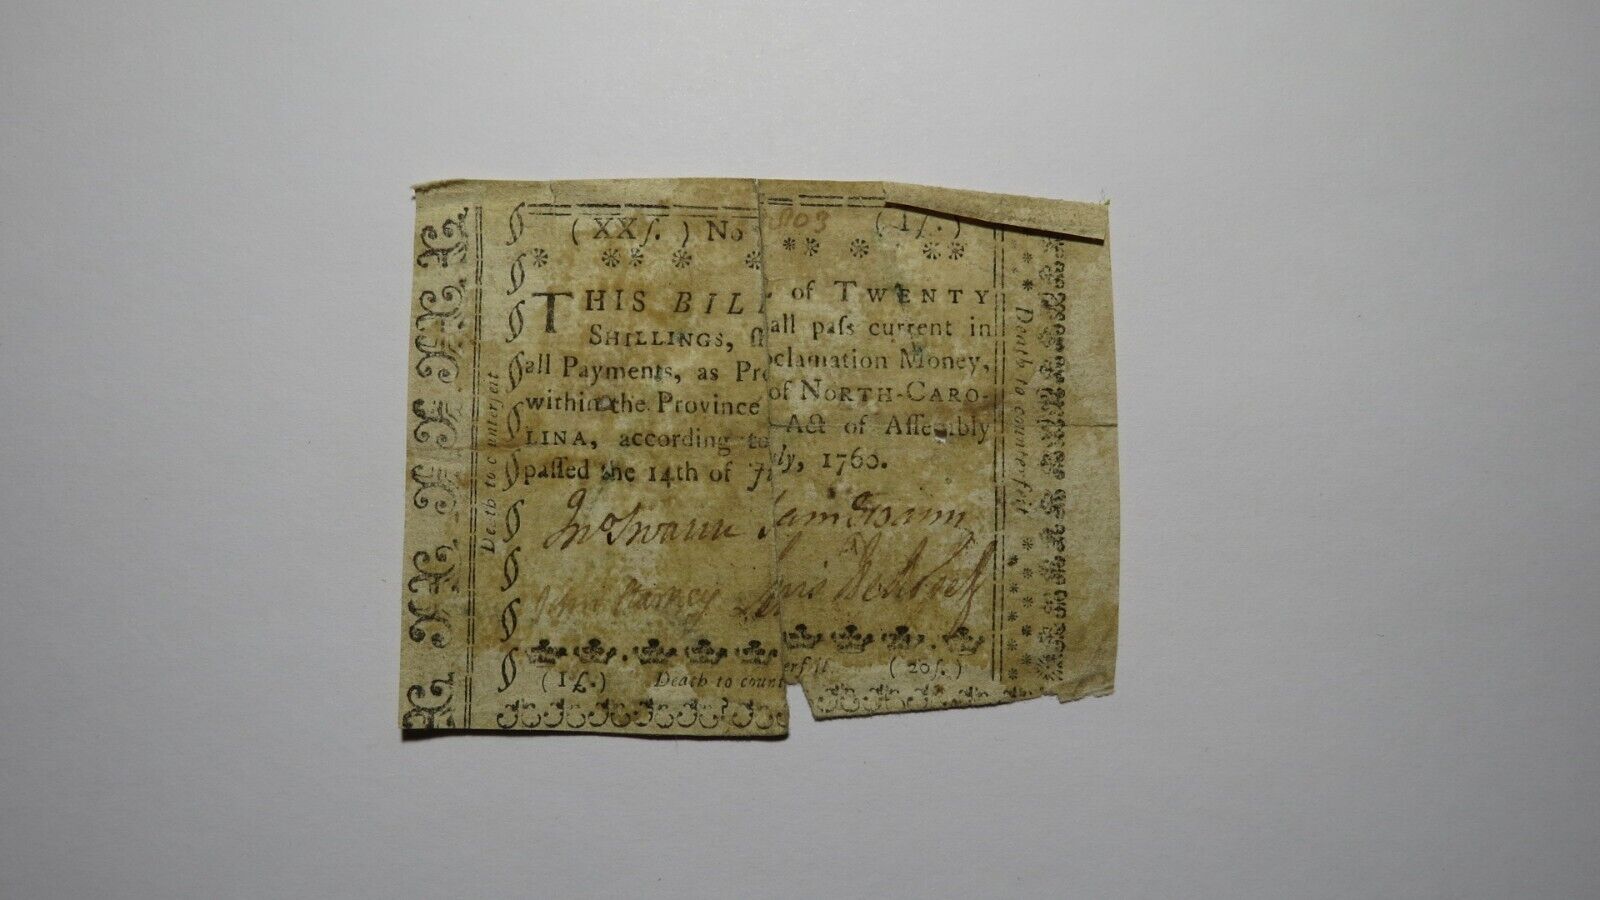 (XXſ.) No 803 (1£.)
THIS BILL of TWENTY
SHILLINGS, ſhall paſs current in
all Payments, as Proclamation Money,
within the Province of NORTH-CARO-
LINA, according to Act of Aſſembly
paſſed the 14th of July, 1760.
Jno Swann Sam Swann
John Barney Lewis DeRosset
(1£.) Death to counterfeit (20ſ.)
Death to counterfeit
Death to counterfeit